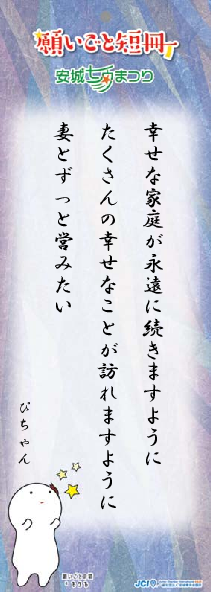 願いごと短冊
安城七夕まつり
幸せな家庭が永遠に続きますように
たくさんの幸せなことが訪れますように
妻とずっと営みたい
ぴちゃん
願いごと短冊
JCI